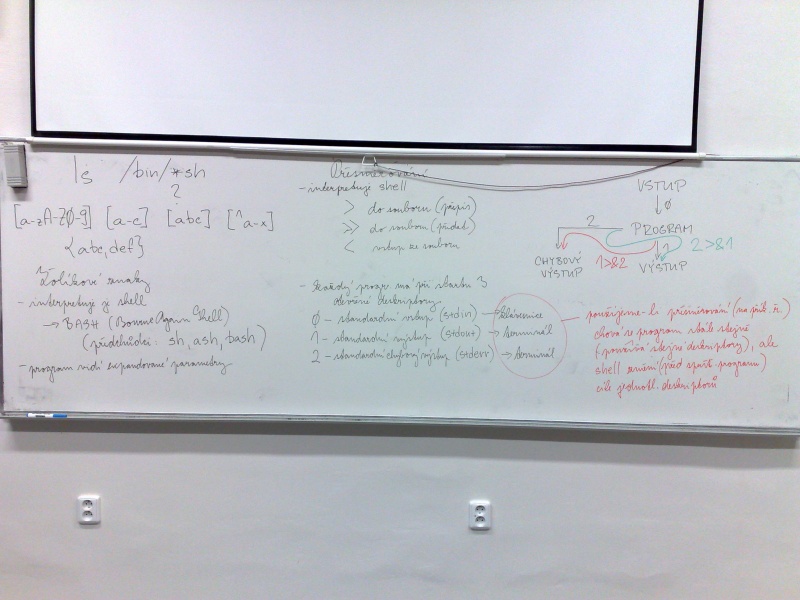 ls /bin/*sh
?
[a-zA-Z0-9] [a-c] [abc] [^a-x]
{abc,def}
Žolíkové znaky
- interpretuje je shell
→ BASH (Bourne Again Shell)
(předchůdci: sh, ash, bash)
- program vidí expandované parametry
Přesměrování
- interpretuje shell
> do souboru (přepis)
>> do souboru (přidat)
< vstup ze souboru
- každý progr. má při startu 3
otevřené deskriptory
0 - standardní vstup (stdin) → klávesnice
1 - standardní výstup (stdout) → terminál
2 - standardní chybový výstup (stderr) → terminál
VSTUP
0
PROGRAM
2
1
1>&2
2>&1
CHYBOVÝ
VÝSTUP
VÝSTUP
použijeme-li přesměrování (např. r.)
chová se program stále stejně
(používá stejné deskriptory), ale
shell změní (před spušt. programu)
cíle jednotl. deskriptorů